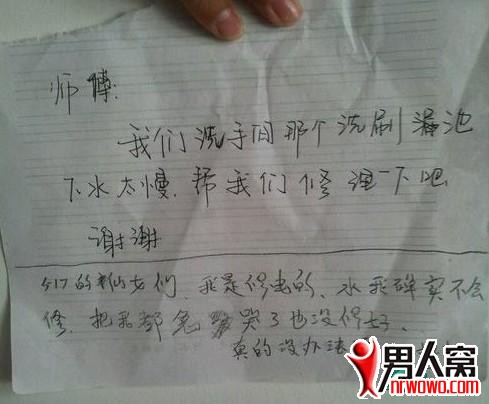 师傅:
我们洗手间那个洗刷池
下水太慢.帮我们修理一下吧
谢谢
517的仙女们、我是修电的、水我确实不会
修、把我都急哭了也没修好、
真的没办法
男人窝
nrwowo.com